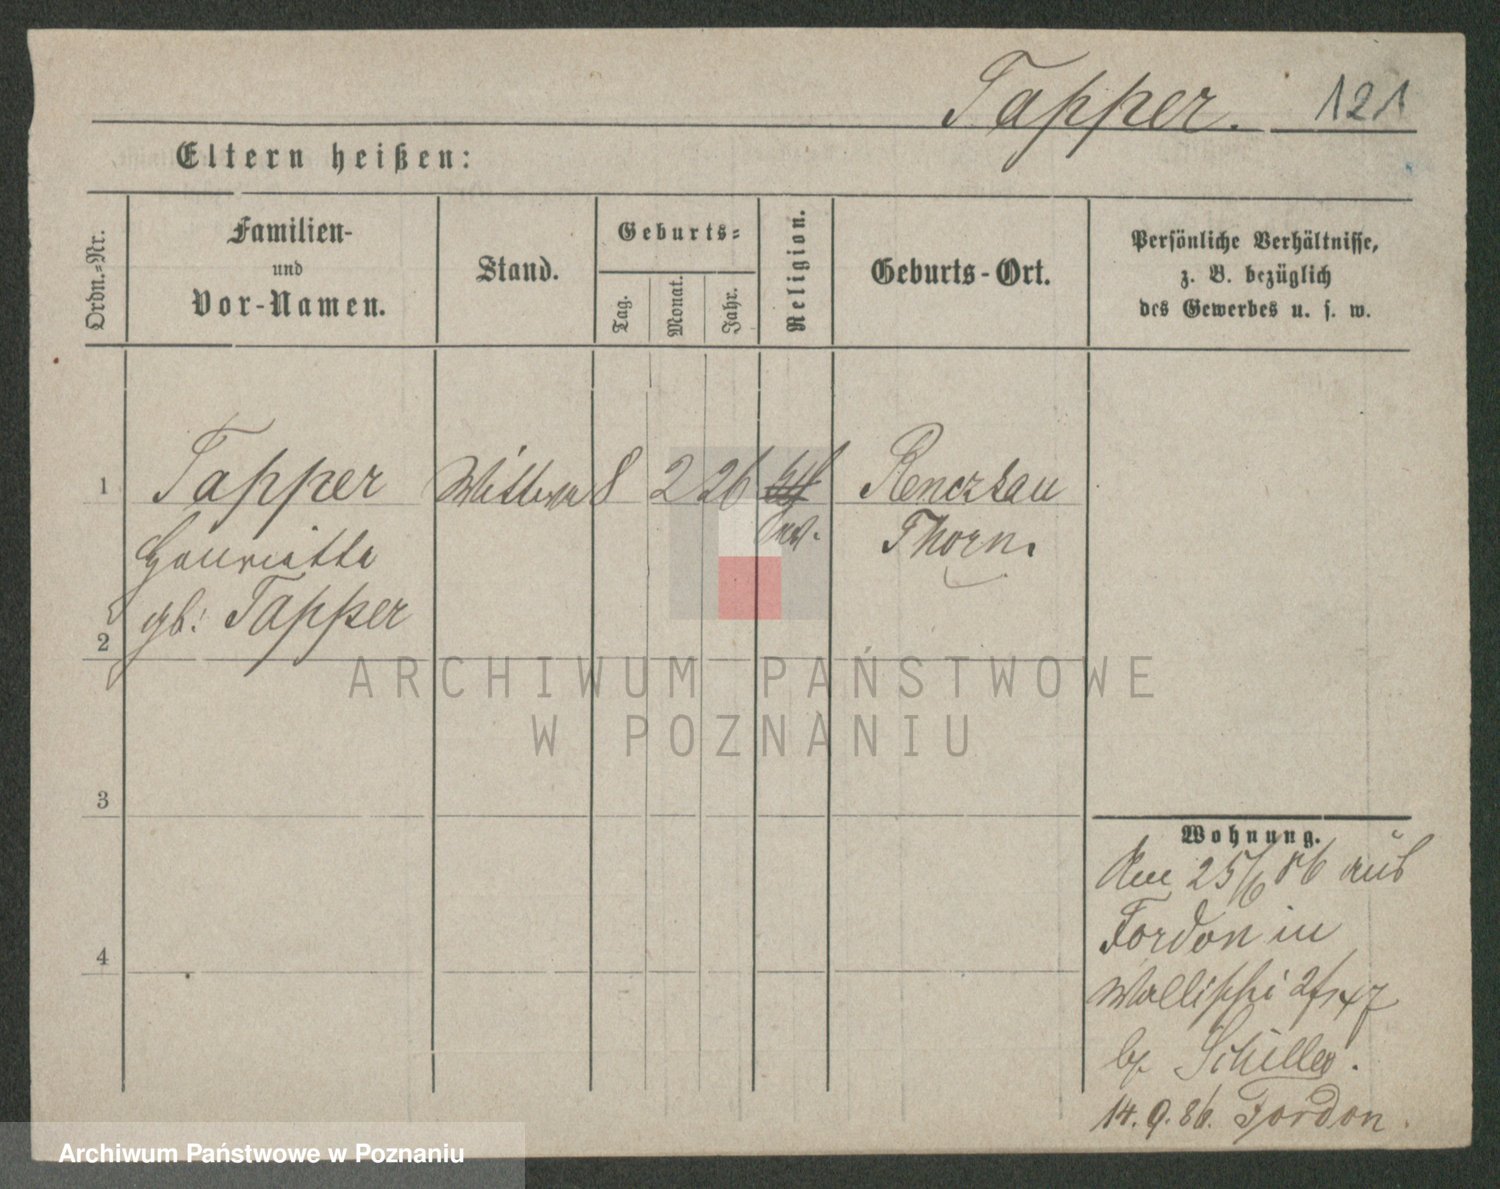 Tapper. 121
Eltern heißen:
Ordn.-Nr.
Familien-
und
Vor-Namen.
Stand.
Geburts-
Tag.
Monat.
Jahr.
Religion.
Geburts-Ort.
Persönliche Verhältnisse,
z. B. bezüglich
des Gewerbes u. s. w.
1 Tapper Wittwe 8 2 26 Renczkau
Henriette Thorn.
gb: Tapper
2
ARCHIWUM PAŃSTWOWE
W POZNANIU
3
4
Wohnung.
Am 25/6 86 aus
Fordon in
Wallischei
by Schiller.
14. 9. 86. Fordon.
Archiwum Państwowe w Poznaniu